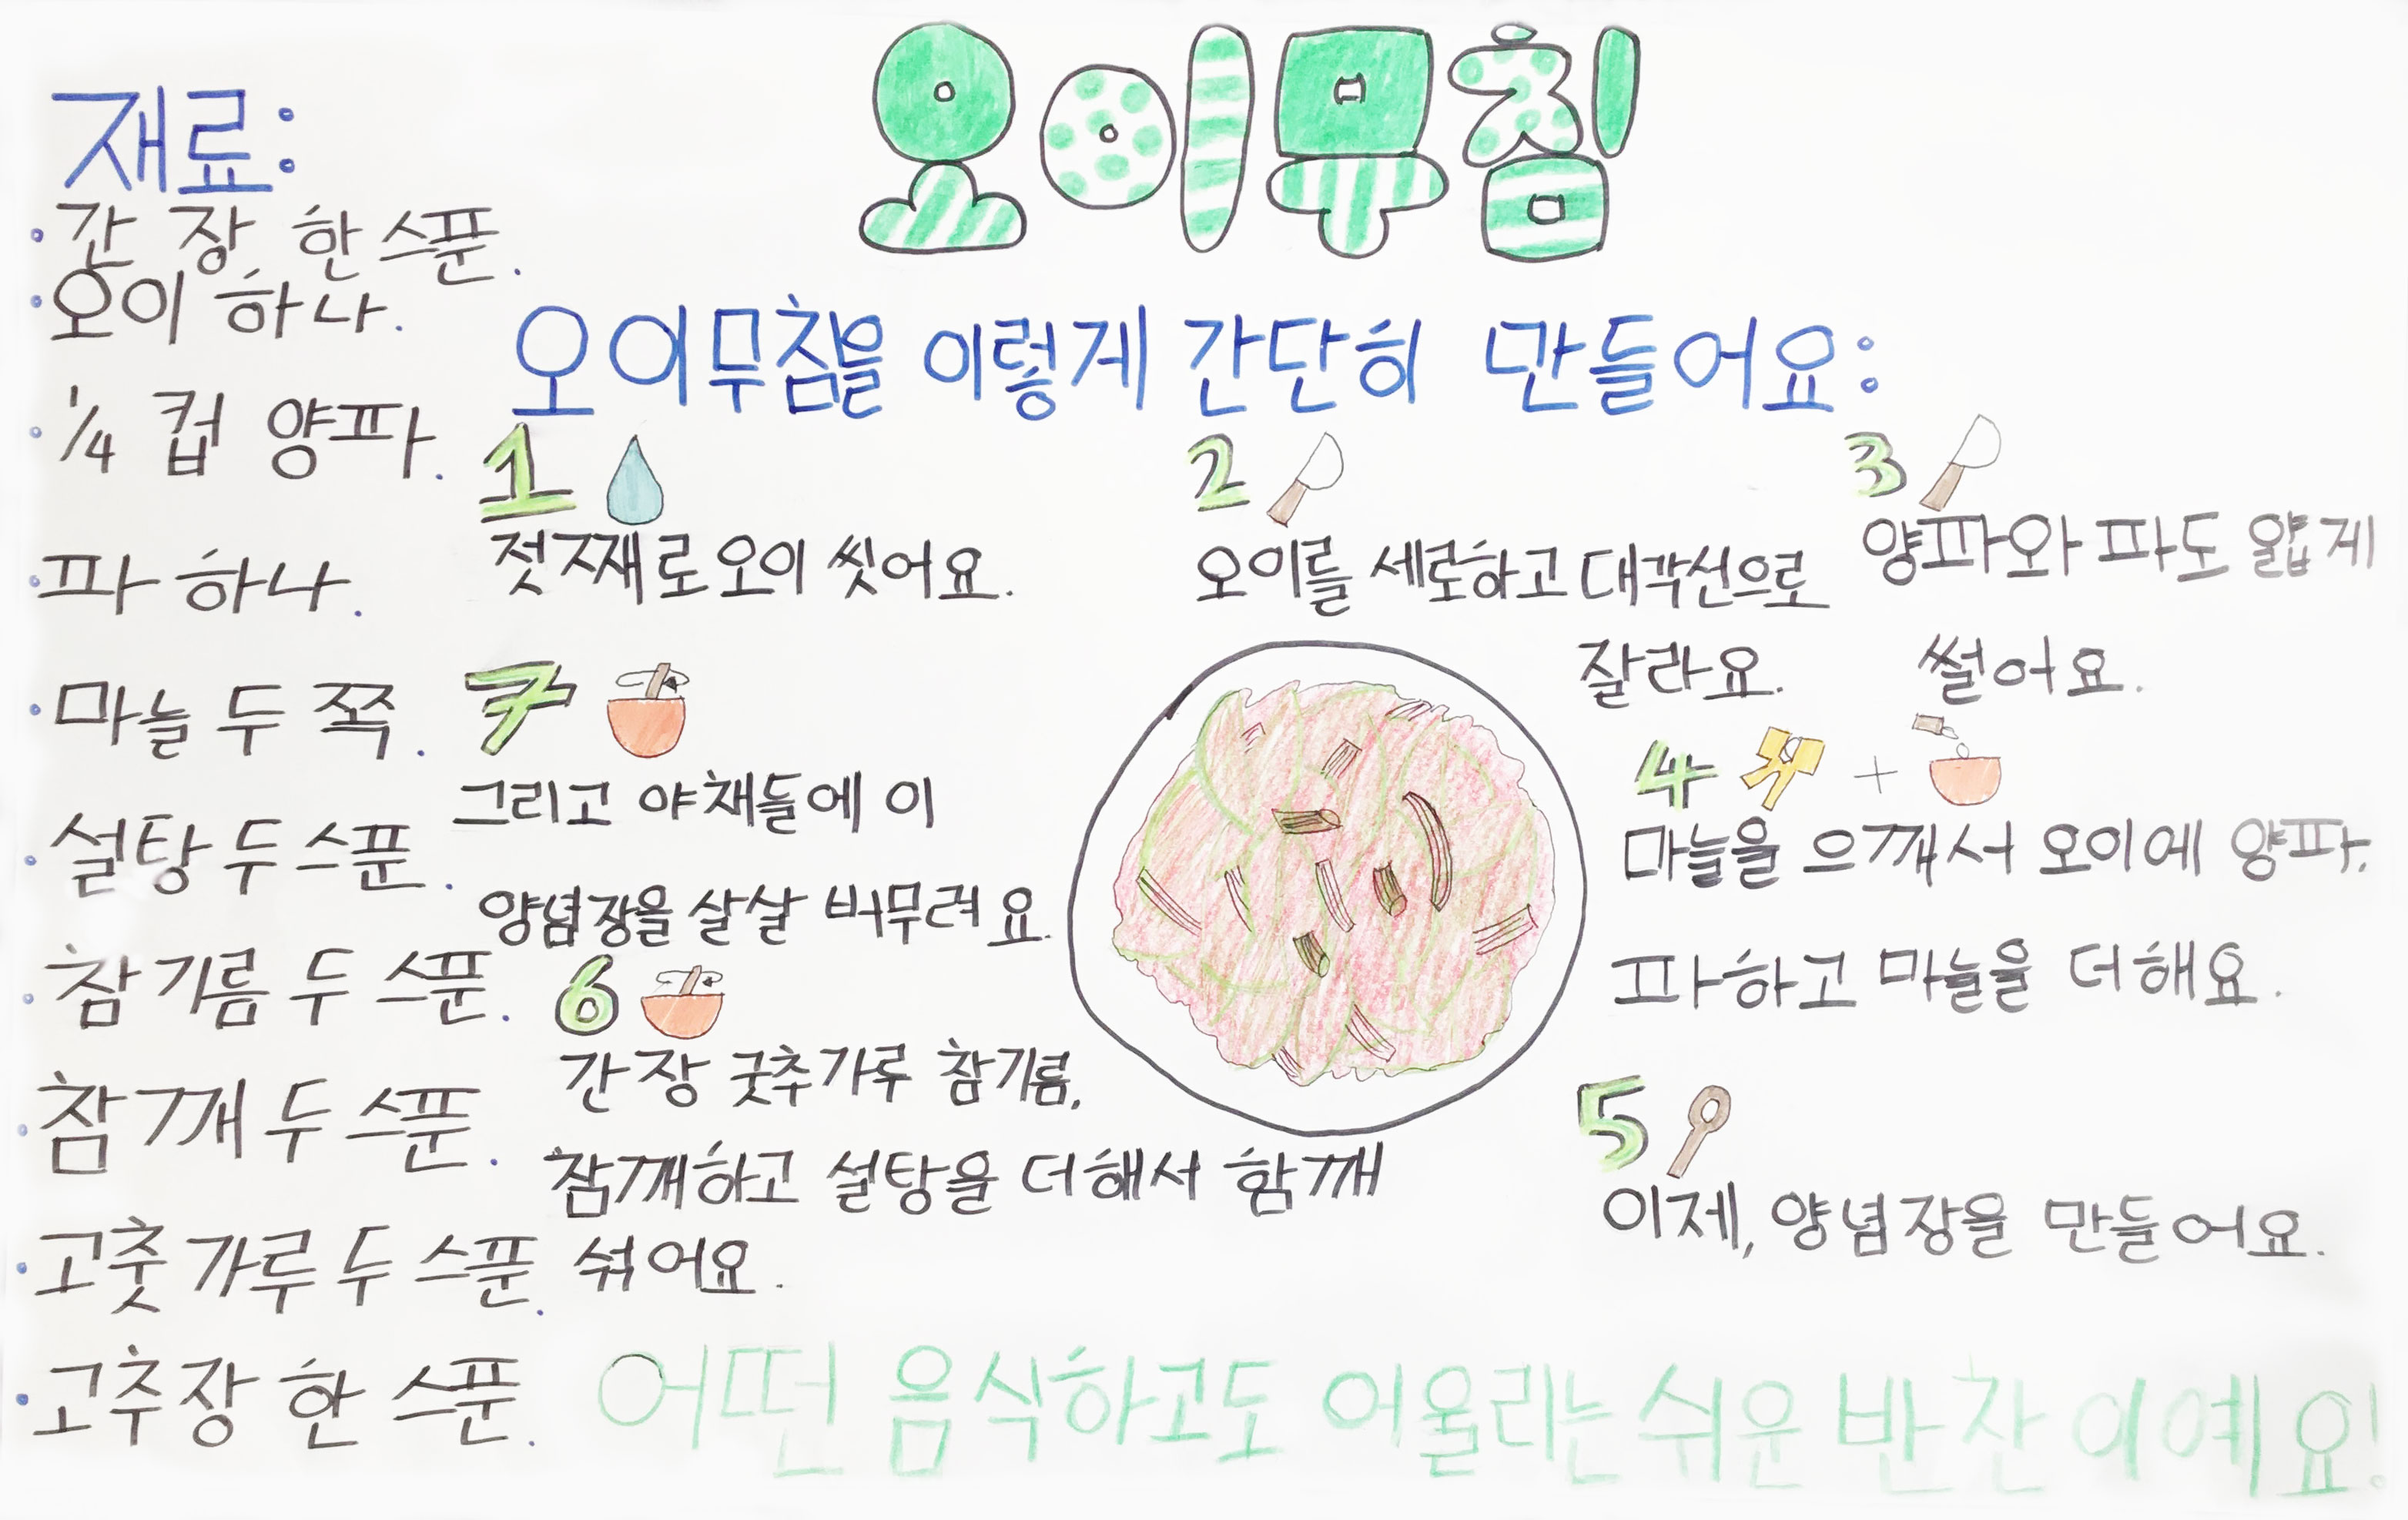 오이무침
재료:
· 간장 한 스푼.
· 오이 하나.
· 1/4 컵 양파.
· 파 하나.
· 마늘 두 쪽.
· 설탕 두 스푼.
· 참기름 두 스푼.
· 참깨 두 스푼.
· 고춧가루 두 스푼.
· 고추장 한 스푼.
오이무침을 이렇게 간단히 만들어요:
1
젓째로 오이 씻어요.
2
오이를 세로하고 대각선으로
잘라요.
3
양파와 파도 얇게
썰어요.
4 +
마늘을 으깨서 오이에 양파,
파하고 마늘을 더해요.
5
이제, 양념장을 만들어요.
6
간장 굿추가루 참기름,
참깨하고 설탕을 더해서 함깨
섞어요.
7
그리고 야채들에 이
양념장을 살살 버무려요.
어떤 음식하고도 어울리는 쉬운 반찬이예요!